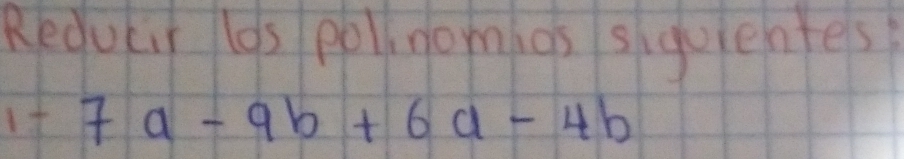 Reducir los polinomios siguientes:
1- 7a - 9b + 6a - 4b